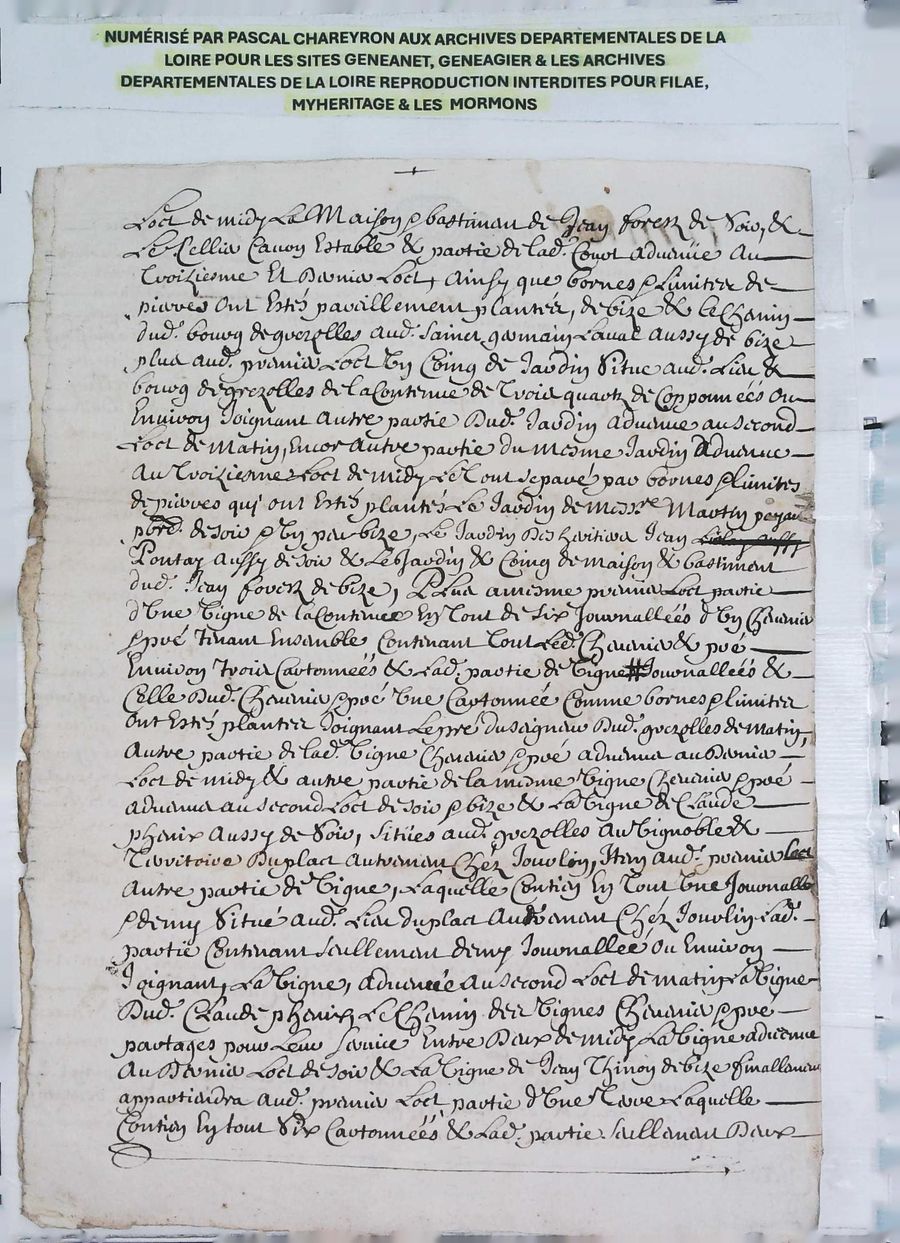 NUMÉRISÉ PAR PASCAL CHAREYRON AUX ARCHIVES DEPARTEMENTALES DE LA
LOIRE POUR LES SITES GENEANET, GENEAGIER & LES ARCHIVES
DEPARTEMENTALES DE LA LOIRE REPRODUCTION INTERDITES POUR FILAE,
MYHERITAGE & LES MORMONS
Loct de midy La Maison & bastiment de Jean forest de Soir, &
Le Cellier Cauon Estable & partie de lad. Court aduenüe Au
Troiziesme Et Dernier Loct, Ainsy que bornes & limites de
pierres ont Estés pareillement plantés, de bize & le Chemin
dud. bourg de grezolles aud. Sainct germain Laual Aussy de bize
plus aud. premier Loct Un Coing de Jardin Situé aud. Lieu &
bourg de grezolles de la Contenue de Trois quartz de Copponnéés ou
Enuiron Joignant Autre partie Dud. Jardin aduenue au second
Loct de Matin, Encor Autre partie du Mesme Jardin Aduenue
Au Troiziesme Loct de midy Le Tout separé par bornes & limites
de pierres qui ont Estés plantés Le Jardin de Mess.re Martin
pbre. de soir & Un peu bize, Le Jardin Des heritiers Jean
Pontay Aussy de soir & Le Jardin & Coing de maison & bastiment
dud. Jean forest de bize, Plus a mesme premier Loct partie
d'Une Vigne de la Contenue En Tout de Six Journalléés d'Un Cheneuier
& pré Tenant Ensemble Contenant Tout Led. Cheneuier & pré
Enuiron Trois Cartonnéés & Lad. partie de Vigne # Journalléés &
Celle Dud. Cheneuier & pré Une Cartonnée Comme bornes & limites
ont Estés plantés Joignant Le pré du seigneur Dud. grezolles de Matin,
Autre partie de lad. Vigne Cheneuier & pré aduenus au Dernier
Loct de midy & autre partie de la mesme Vigne Cheneuier & pré
Aduenus au second Loct de soir & bize & La Vigne de Claude
phenix Aussy de Soir, sitüés aud. grezolles Au Vignoble &
Territoire Du plact Autrement Chéz Jourlin, Item aud. premier Loct
Autre partie de Vigne, Laquelle Contien En Tout Une Journallé
& demy Situé aud. Lieu du plact Autrement Chéz Jourlin Lad.
partie Contenant seullement demy Journalleé ou Enuiron
Joignant, La Vigne, aduenüe Au second Loct de matin La Vigne
Dud. Claude phenix, Le Chemin des Vignes Cheneuier & pré
partagés pour Leur seruice Entre Deux de midy La Vigne aduenue
Au Dernier Loct de soir & La Vigne de Jean Thinon de bize finallement
appartiendra aud. premier Loct partie d'Une Terre Laquelle
Contien En tout Six Cartonnéés & Lad. partie seullement Deux